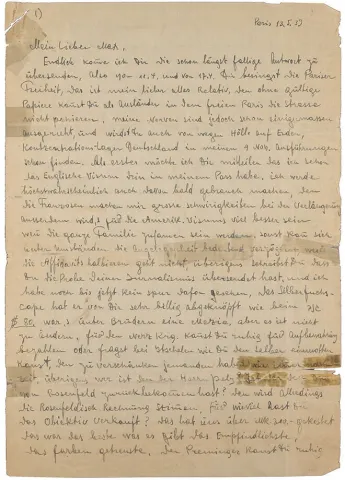 1)
Paris 12.5.39
Mein lieber Max,
Endlich komme ich Dir die schon längst fällige Antwort zu
übersenden, Also von 11.4. und von 17.4. Du besingst die Pariser
Freiheit, das ist mein lieber alles Relativ, den ohne gültige
Papiere kannst Du als Ausländer in dem freien Paris die Strasse
nicht passieren, meine Nerven sind jedoch schon einigermassen
ausgeruht, und wirst Du auch von wegen Hölle auf Erden,
Konzentrations-Lager Deutschland in meinen 9 Nov. Ausführungen
schon finden. Als erstes möchte ich Dir mitteilen das ich schon
das Englische Visum in meinem Pass habe, ich werde
höchstwahrscheinlich auch davon bald gebrauch machen, denn
die Franzosen machen mir grosse schwierigkeiten bei der Verlängerung
ausserdem wird für die Amerik. Visums viel besser sein
wen die ganze Familie zusamen sein werden, sonst kann sich
unter umständen die Angelegenheit verzögern, weil
die Affidavits halbieren geht nicht, übrigens schreibst Du dass
Du die Reste Deines Journalismus übersendet hast, und ich
habe noch bis jetzt kein spur davon gesehen, das
hat er von Dir sehr billig abgeknöpft wie beim
$ 80. war's unter Brüdern eine Mezzia, aber es ist nicht
zu ändern, für den kannst Du ruhig für Aufbewahrung
bezahlen oder fragst bei wie Du den selben
kannst, den zu verschenken jemanden
Zeit, übrigens, wo ist den der Herr
von Rosenfeld zurückbekommen hast? den wird Allerdings
die Rosenfeldische Rechnung stimmen, für wieviel hast Du
das Objektiv Verkauft? Das hat uns über gekostet
das war das beste was es gibt das Empfindlichste,
das farben getreuste, den kannst Du ruhig